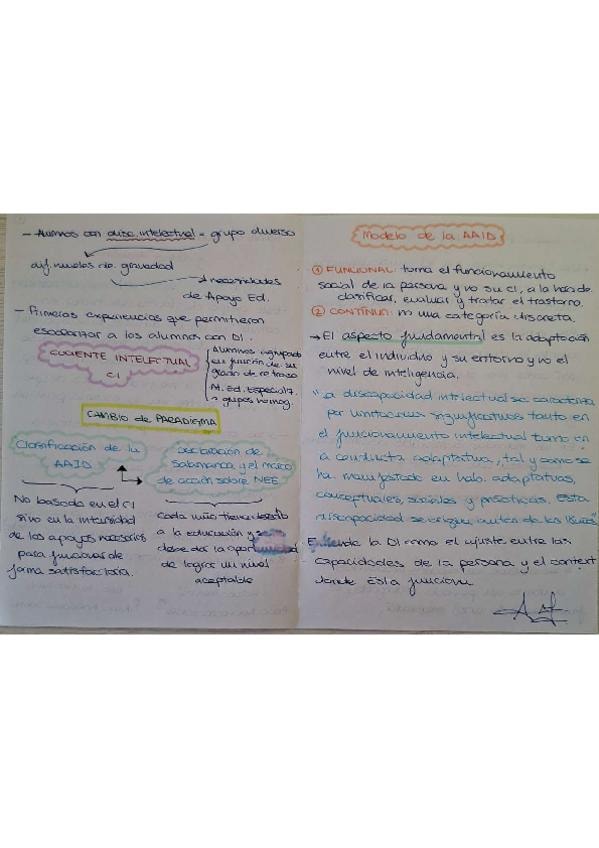 - Alumnos con disc. intelectual = grupo diverso
dif. niveles de gravedad
necesidades
de Apoyo Ed.
- Primeras experiencias que permitieron
escolarizar a los alumnos con DI.
COCIENTE INTELECTUAL
CI
Alumnos agrupado
en función de su
grado de retraso
At. Ed. Especial
grupos homog.
CAMBIO de PARADIGMA
Clasificación de la
AAID
No basada en el CI
sino en la intensidad
de los apoyos necesarios
para funcionar de
forma satisfactoria.
Declaración de
Salamanca y el marco
de acción sobre NEE
Cada niño tiene derecho
a la educación y se
debe dar la oportunidad
de lograr un nivel
aceptable
Modelo de la AAID
① FUNCIONAL: toma el funcionamiento
social de la persona y no su CI, a la hora de
clasificar, evaluar y tratar el trastorno.
② CONTÍNUA: no una categoría discreta.
→ El aspecto fundamental es la adaptación
entre el individuo y su entorno y no el
nivel de inteligencia.
"La discapacidad intelectual se caracteriza
por limitaciones significativas tanto en
el funcionamiento intelectual como en
la conducta adaptativa, tal y como se
ha manifestado en hab. adaptativas,
conceptuales, sociales y prácticas. Esta
discapacidad se origina antes de los 18 años"
Entiende la DI como el ajuste entre las
capacidades de la persona y el context
donde ésta funciona